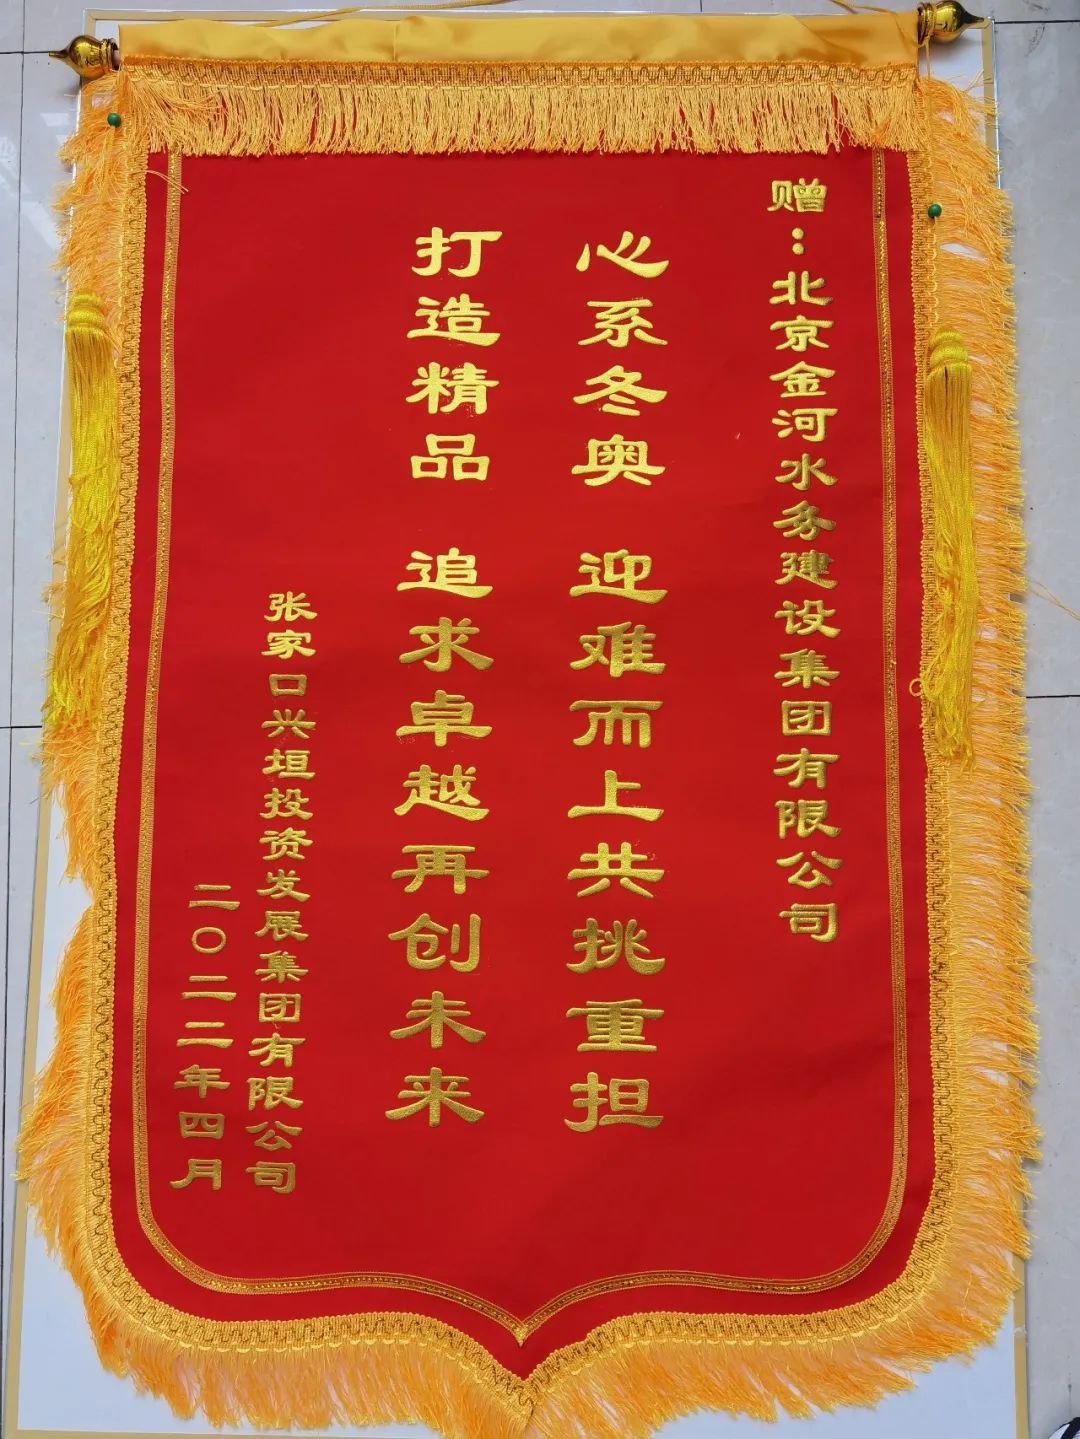 赠：北京金河水务建设集团有限公司
心系冬奥 迎难而上共挑重担
打造精品 追求卓越再创未来
张家口兴垣投资发展集团有限公司
二〇二二年四月